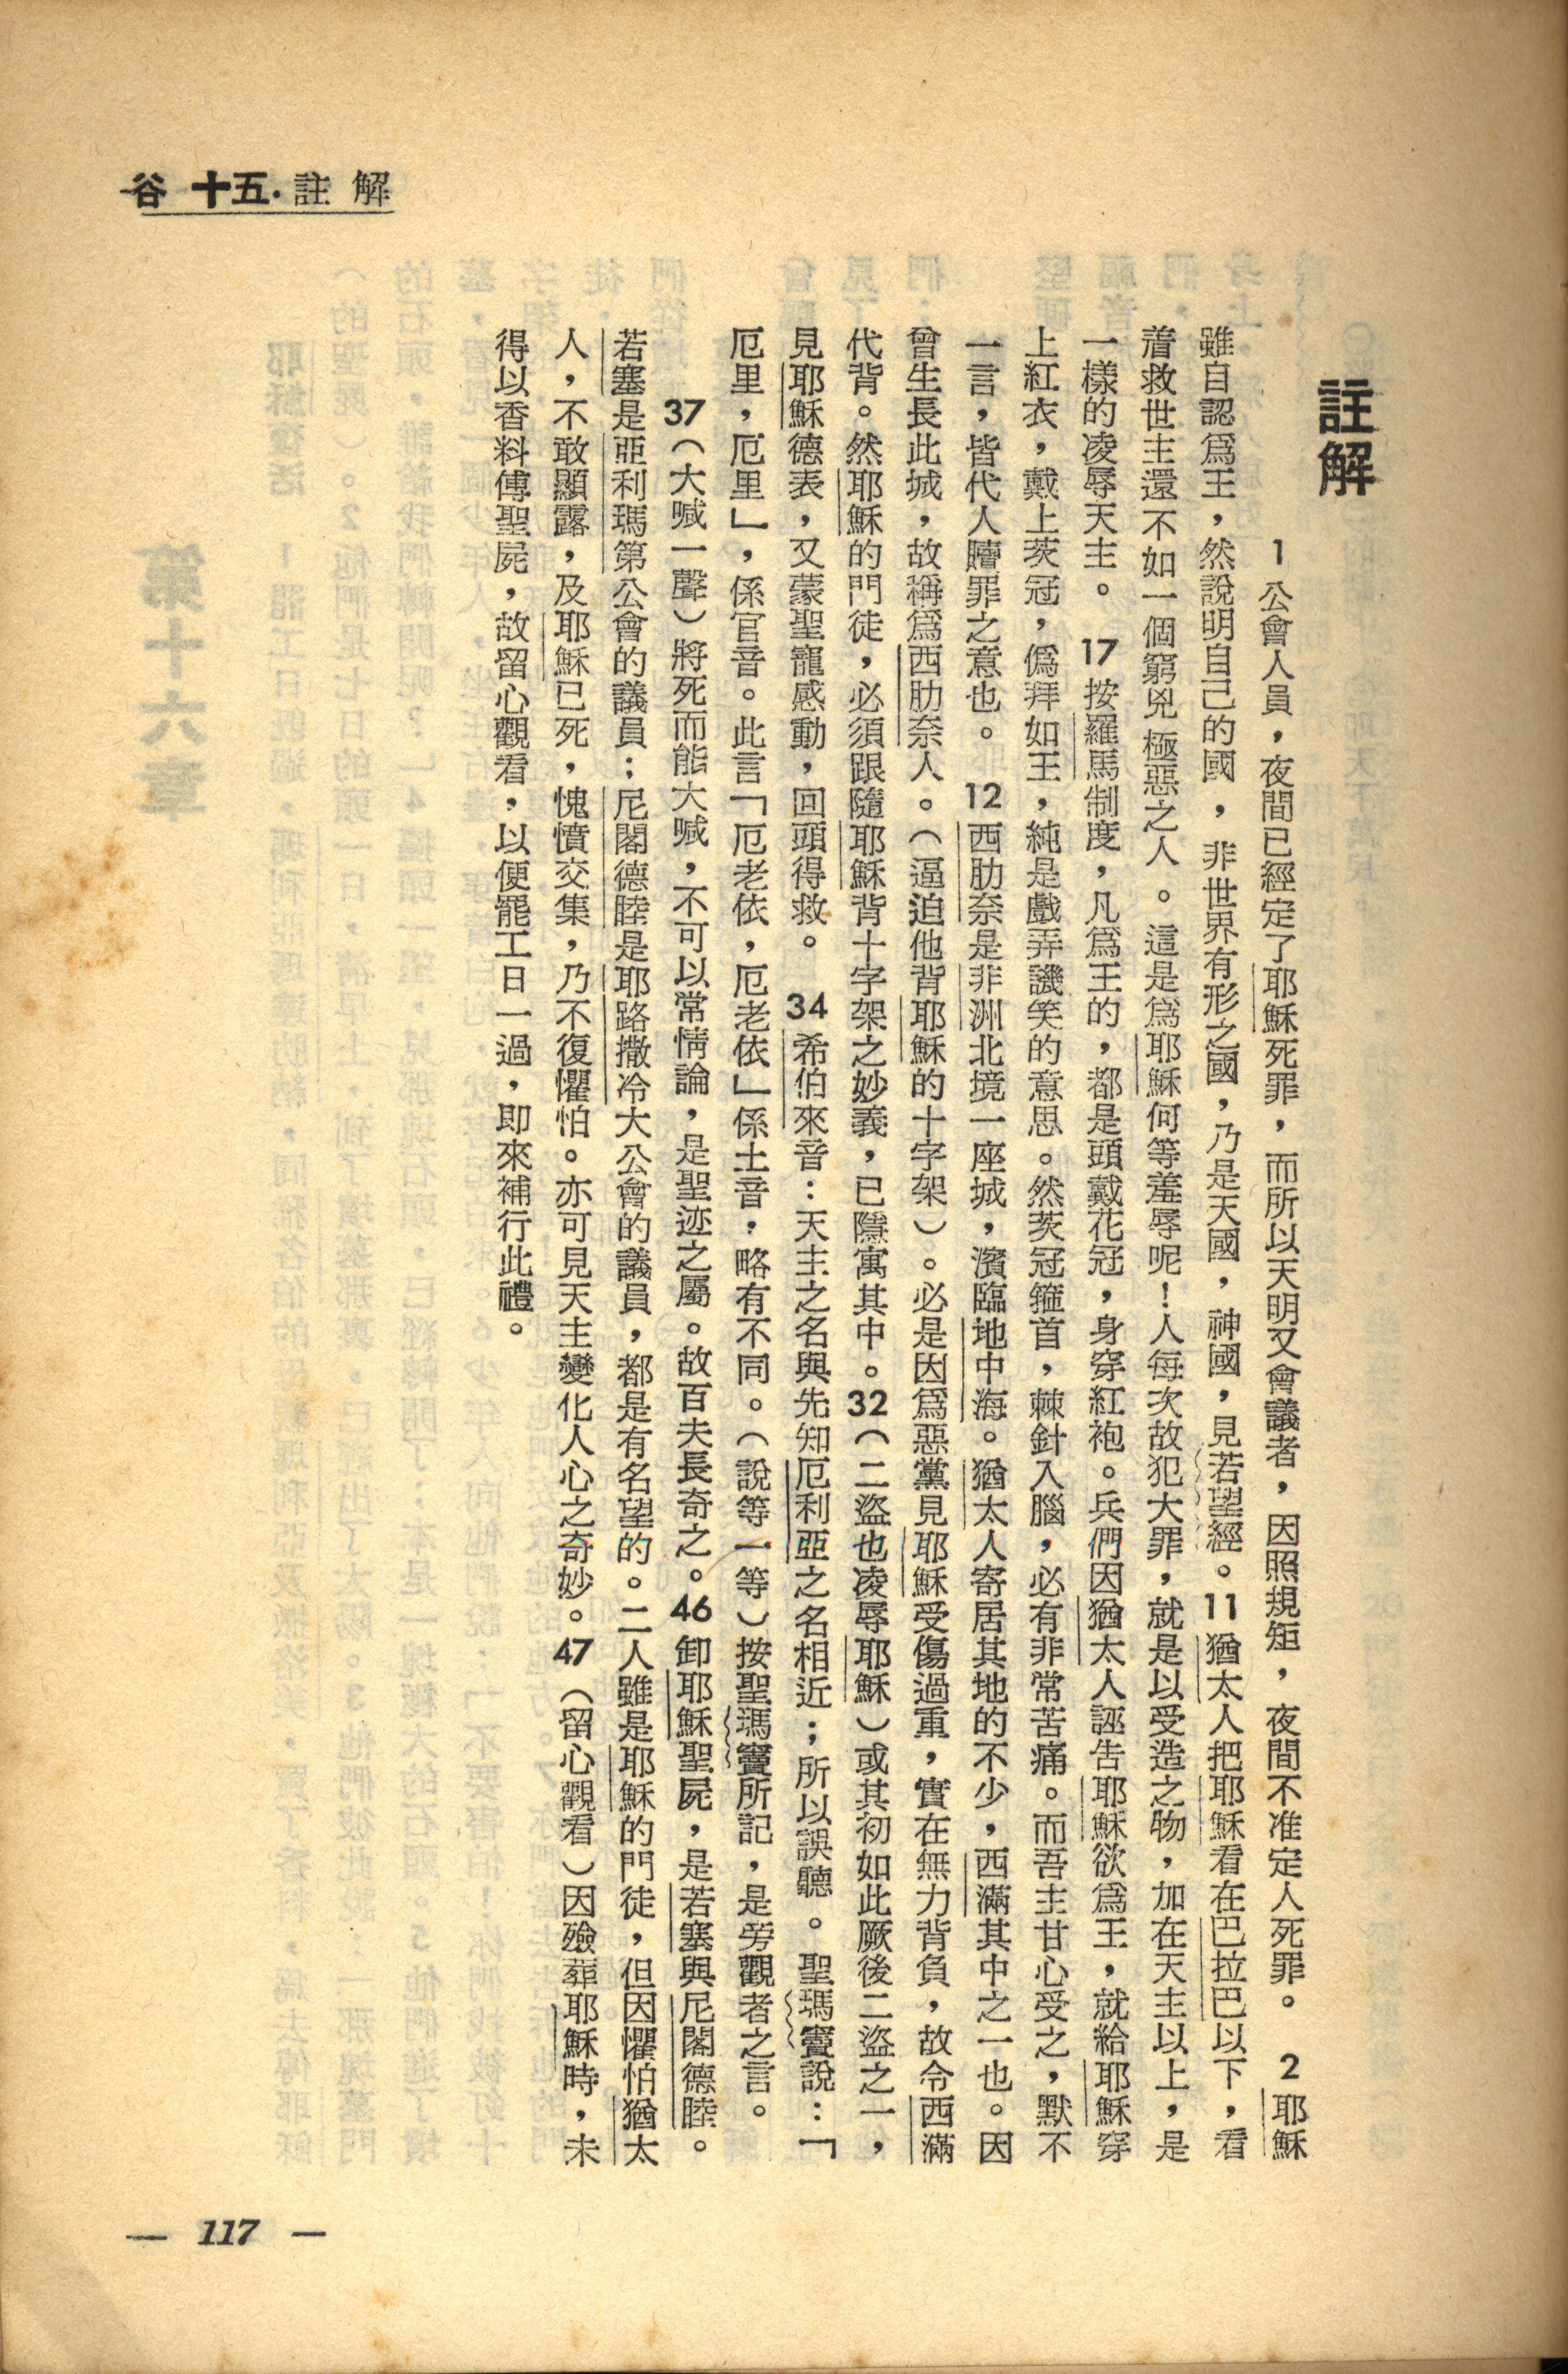 谷 十五·註解
註解
1 公會人員，夜間已經定了耶穌死罪，而所以天明又會議者，因照規矩，夜間不准定人死罪。 2 耶穌
雖自認爲王，然說明自己的國，非世界有形之國，乃是天國，神國，見若望經。 11 猶太人把耶穌看在巴拉巴以下，看
着救世主還不如一個窮兇極惡之人。這是爲耶穌何等羞辱呢！人每次故犯大罪，就是以受造之物，加在天主以上，是
一樣的凌辱天主。 17 按羅馬制度，凡爲王的，都是頭戴花冠，身穿紅袍。兵們因猶太人誣告耶穌欲爲王，就給耶穌穿
上紅衣，戴上茨冠，僞拜如王，純是戲弄譏笑的意思。然茨冠箍首，棘針入腦，必有非常苦痛。而吾主甘心受之，默不
一言，皆代人贖罪之意也。 12 西肋奈是非洲北境一座城，濱臨地中海。猶太人寄居其地的不少，西滿其中之一也。因
曾生長此城，故稱爲西肋奈人。（逼迫他背耶穌的十字架）。必是因爲惡黨見耶穌受傷過重，實在無力背負，故令西滿
代背。然耶穌的門徒，必須跟隨耶穌背十字架之妙義，已隱寓其中。 32（二盜也凌辱耶穌）或其初如此厥後二盜之一，
見耶穌德表，又蒙聖寵感動，回頭得救。 34 希伯來音：天主之名與先知厄利亞之名相近；所以誤聽。聖瑪竇說：「
厄里，厄里」，係官音。此言「厄老依，厄老依」係土音，略有不同。（說等一等）按聖瑪竇所記，是旁觀者之言。
37（大喊一聲）將死而能大喊，不可以常情論，是聖迹之屬。故百夫長奇之。 46 卸耶穌聖屍，是若塞與尼閣德睦。
若塞是亞利瑪第公會的議員；尼閣德睦是耶路撒冷大公會的議員，都是有名望的。二人雖是耶穌的門徒，但因懼怕猶太
人，不敢顯露，及耶穌已死，愧憤交集，乃不復懼怕。亦可見天主變化人心之奇妙。 47（留心觀看）因殮葬耶穌時，未
得以香料傅聖屍，故留心觀看，以便罷工日一過，即來補行此禮。
— 117 —